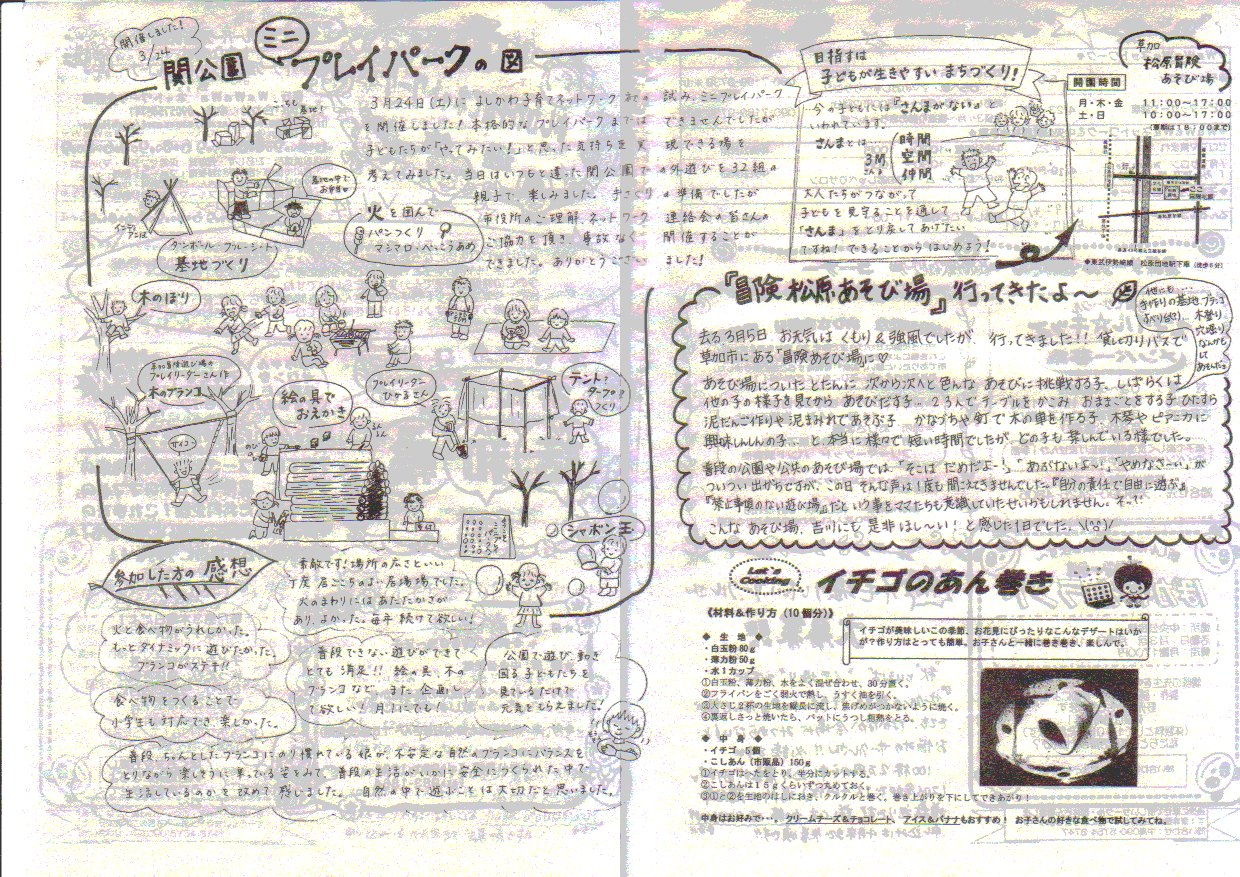 開催しました!
3/24
関公園 ミニ プレイパークの図
3月24日(土)に よしかわ子育てネットワーク初の 試み、ミニプレイパーク
を開催しました!本格的なプレイパークまでは できませんでしたが
子どもたちが「やってみたい!」と思った気持ちを実 現できる場を
考えてみました。当日はいつもと違った関公園で の外遊びを32組の
親子で、楽しみました。手さぐり の準備でしたが
市役所のご理解、ネットワーク 連絡会の皆さんの
ご協力を頂き、事故なく 開催することが
できました。ありがとうござい ました!
こっちも
基地!
基地の中で
お弁当
インディアンは
ダンボール・ブルーシートで
基地づくり
火を囲んで
パンつくり
マシマロ・べっこうあめ
木のぼり
草加冒険遊び場の
プレイリーダーさん作
木のブランコ
サイコー
絵の具で
おえかき
プレイリーダー
ひかるさん
テント・
タープ
つくり
受付
シャボン玉
参加した方の 感想
素敵です!場所の広さといい
丁度居ごこちのよい居場場でした。
火のまわりには あたたかさが
あり、よかった。毎年 続けて欲しい!
火と食べ物がうれしかった。
もっとダイナミックに遊びたかった。
ブランコがステキ!!
普段できない遊びができて
とても 満足!! 絵の具、木の
ブランコなど、また 企画し
て欲しい! 月1にでも!
公園で遊び、動き
回る子どもたちを
見ているだけで
元気をもらえました!
食べ物をつくることで
小学生も対応でき 楽しかった。
普段、ちゃんとしたブランコにのり慣れている娘が、不安定な自然のブランコにバランスを
とりながら 楽しそうに乗っている姿をみて、普段の生活がいかに安全につくられた中で
生活しているのかを 改めて 感じました。 自然の中で遊ぶことは大切だと思いました。
目指すは
子どもが生きやすい まちづくり!
今の子どもには『さんまがない』と
いわれています。
さんまとは…
3間
さんま
時間
空間
仲間
大人たちがつながって
子どもを見守ることを通して
「さんま」をとり戻してあげたい
ですね!できることからはじめよう!
草加
松原冒険
あそび場
開園時間
月・木・金 11:00~17:00
土・日 10:00~17:00
(夏期は18:00まで)
◆東武伊勢崎線 松原団地駅下車(徒歩5分)
『冒険松原あそび場』行ってきたよ~
他にも…
手作りの基地、ブランコ
すべり台、木登り
穴堀り
なんかも
して
あそんだョ
去る2月5日 お天気は くもり&強風でしたが、行ってきました!!貸し切りバスで
草加市にある「冒険あそび場」に♡
あそび場についたとたんに 次から次へと色んな あそびに挑戦する子、しばらくは
他の子の様子を見てから あそびだす子… 2,3人でテーブルをかこみ おままごとをする子、ひたすら
泥だんご作りや 泥まみれであそぶ子 かなづちや釘で木の車を作る子 木琴や ピアニカに
興味しんしんの子… と 本当に様々で 短い時間でしたが、どの子も楽しんでいる様でした。
普段の公園や公共のあそび場では、「そこはだめだよー!」「あぶないよ~」「やめなさーい」が
ついつい出がちですが、この日 そんな声は1度も聞こえてきませんでした。『自分の責任で自由に遊ぶ』
『禁止事項のない遊び場』だという事をママたちも意識していたせいかもしれません。
こんな あそび場、吉川にも 是非ほし~い!と感じた1日でした。
Let's
Cooking
イチゴのあん巻き
《材料&作り方(10個分)》
イチゴが美味しいこの季節、お花見にぴったりなこんなデザートはいか
が?作り方はとっても簡単。お子さんと一緒に巻き巻き、楽しんで。
◆ 生 地 ◆
・白玉粉80g
・薄力粉50g
・水1カップ
①白玉粉、薄力粉、水をよく混ぜ合わせ、30分置く。
②フライパンをごく弱火で熱し、うすく油を引く。
③大さじ2杯の生地を縦長に流し、焦げめがつかないように焼く。
④裏返しさっと焼いたら、バットにうつし粗熱をとる。
◆ 中 身 ◆
・イチゴ 5個
・こしあん(市販品)150g
①イチゴはへたをとり、半分にカットする。
②こしあんは15gくらいずつ丸めておく。
③①と②を生地のはしにおき、クルクルと巻く。巻き上がりを下にしてできあがり!
中身はお好みで・・・。クリームチーズ&チョコレート、アイス&バナナもおすすめ! お子さんの好きな食べ物で試してみてね。